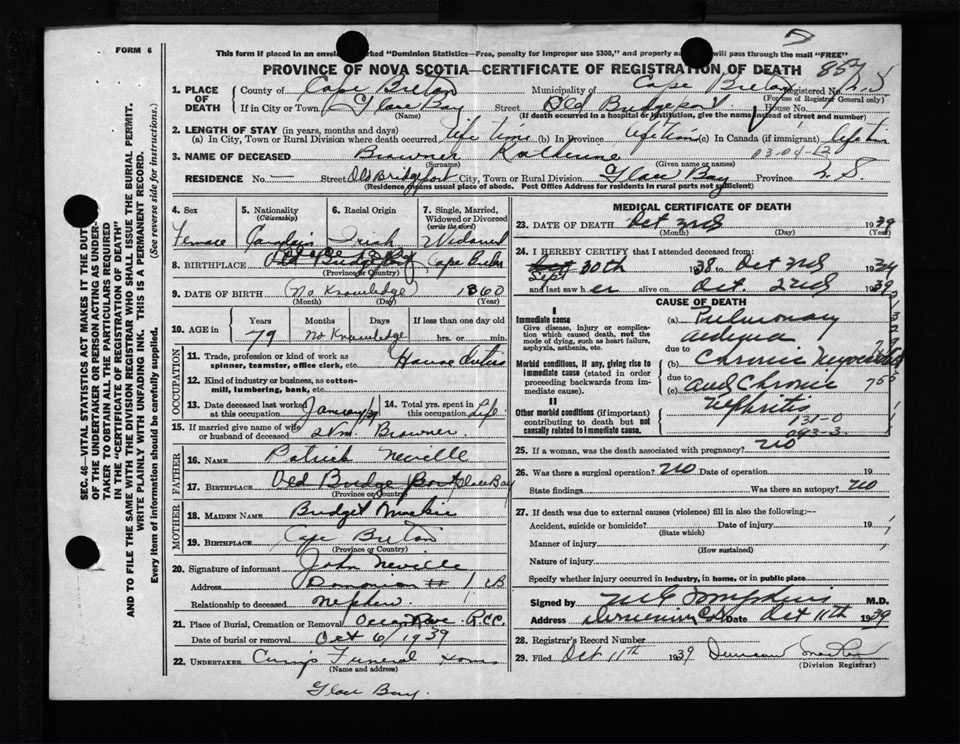 FORM 6
This form if placed in an envelope marked "Dominion Statistics—Free, penalty for improper use $300," and properly will pass through the mail "FREE"
PROVINCE OF NOVA SCOTIA—CERTIFICATE OF REGISTRATION OF DEATH
857
1. PLACE OF DEATH County of Cape Breton Municipality of Cape Breton Registered No.
(For use of Registrar General only)
If in City or Town Glace Bay Street Old Bridgeport House No.
(Name) (If death occurred in a hospital or institution, give the name instead of street and number)
2. LENGTH OF STAY (in years, months and days)
(a) In City, Town or Rural Division where death occurred life time (b) In Province life time (c) In Canada (if immigrant) life time
3. NAME OF DECEASED Browner Katherine 03-04-
(Surname) (Given name or names)
RESIDENCE No. — Street Old Bridgeport City, Town or Rural Division Glace Bay Province N.S.
(Residence means usual place of abode. Post Office Address for residents in rural parts not sufficient)
4. Sex 5. Nationality (Citizenship) 6. Racial Origin 7. Single, Married, Widowed or Divorced (write the word)
Female Canadain Irish Widowed
8. BIRTHPLACE Old Bridgeport Cape Breton
(Province or Country)
9. DATE OF BIRTH (No Knowledge) 1860
(Month) (Day) (Year)
10. AGE in Years Months Days If less than one day old
79 No Knowledge hrs. or min.
OCCUPATION
11. Trade, profession or kind of work as spinner, teamster, office clerk, etc. House Duties
12. Kind of industry or business, as cotton-mill, lumbering, bank, etc.
13. Date deceased last worked at this occupation January/39 14. Total yrs. spent in this occupation Life
15. If married give name of wife or husband of deceased Wm. Browner
FATHER
16. NAME Patrick Neville
17. BIRTHPLACE Old Bridge Port Glace Bay
(Province or Country)
MOTHER
18. MAIDEN NAME Bridget
19. BIRTHPLACE Cape Breton
(Province or Country)
20. Signature of informant John Neville
Address Donovian # 1 CB
Relationship to deceased Nephew
21. Place of Burial, Cremation or Removal R.C.C.
Date of burial or removal Oct 6/1939
22. UNDERTAKER Funeral Home
(Name and address)
Glace Bay.
MEDICAL CERTIFICATE OF DEATH
23. DATE OF DEATH Oct 2nd 1939
(Month) (Day) (Year)
24. I HEREBY CERTIFY that I attended deceased from:
Sept 30th 1938 to Oct 2nd 1939
and last saw her alive on Oct. 2nd 1939
CAUSE OF DEATH
I
Immediate cause
Give disease, injury or complication which caused death, not the mode of dying, such as heart failure, asphyxia, asthenia, etc.
(a) Pulmonary
due to
Morbid conditions, if any, giving rise to immediate cause (stated in order proceeding backwards from immediate cause).
(b) Chronic
due to
(c) and Chronic
II
Other morbid conditions (if important) contributing to death but not causally related to immediate cause.
Nephritis
131-0
093-3
25. If a woman, was the death associated with pregnancy? no
26. Was there a surgical operation? no Date of operation 19
State findings Was there an autopsy? no
27. If death was due to external causes (violence) fill in also the following:—
Accident, suicide or homicide? Date of injury 19
(State which)
Manner of injury
(How sustained)
Nature of injury
Specify whether injury occurred in industry, in home, or in public place
Signed by M G Tompkins M.D.
Address Dominion C.B. Date Oct 11th 1939
28. Registrar's Record Number
29. Filed Oct 11th 1939 Duncan
(Division Registrar)
SEC. 46—VITAL STATISTICS ACT MAKES IT THE DUTY
OF THE UNDERTAKER OR PERSON ACTING AS UNDERTAKER
TO OBTAIN ALL THE PARTICULARS REQUIRED
IN THE "CERTIFICATE OF REGISTRATION OF DEATH"
AND TO FILE THE SAME WITH THE DIVISION REGISTRAR WHO SHALL ISSUE THE BURIAL PERMIT.
WRITE PLAINLY WITH UNFADING INK. THIS IS A PERMANENT RECORD.
Every item of information should be carefully supplied. (See reverse side for instructions.)